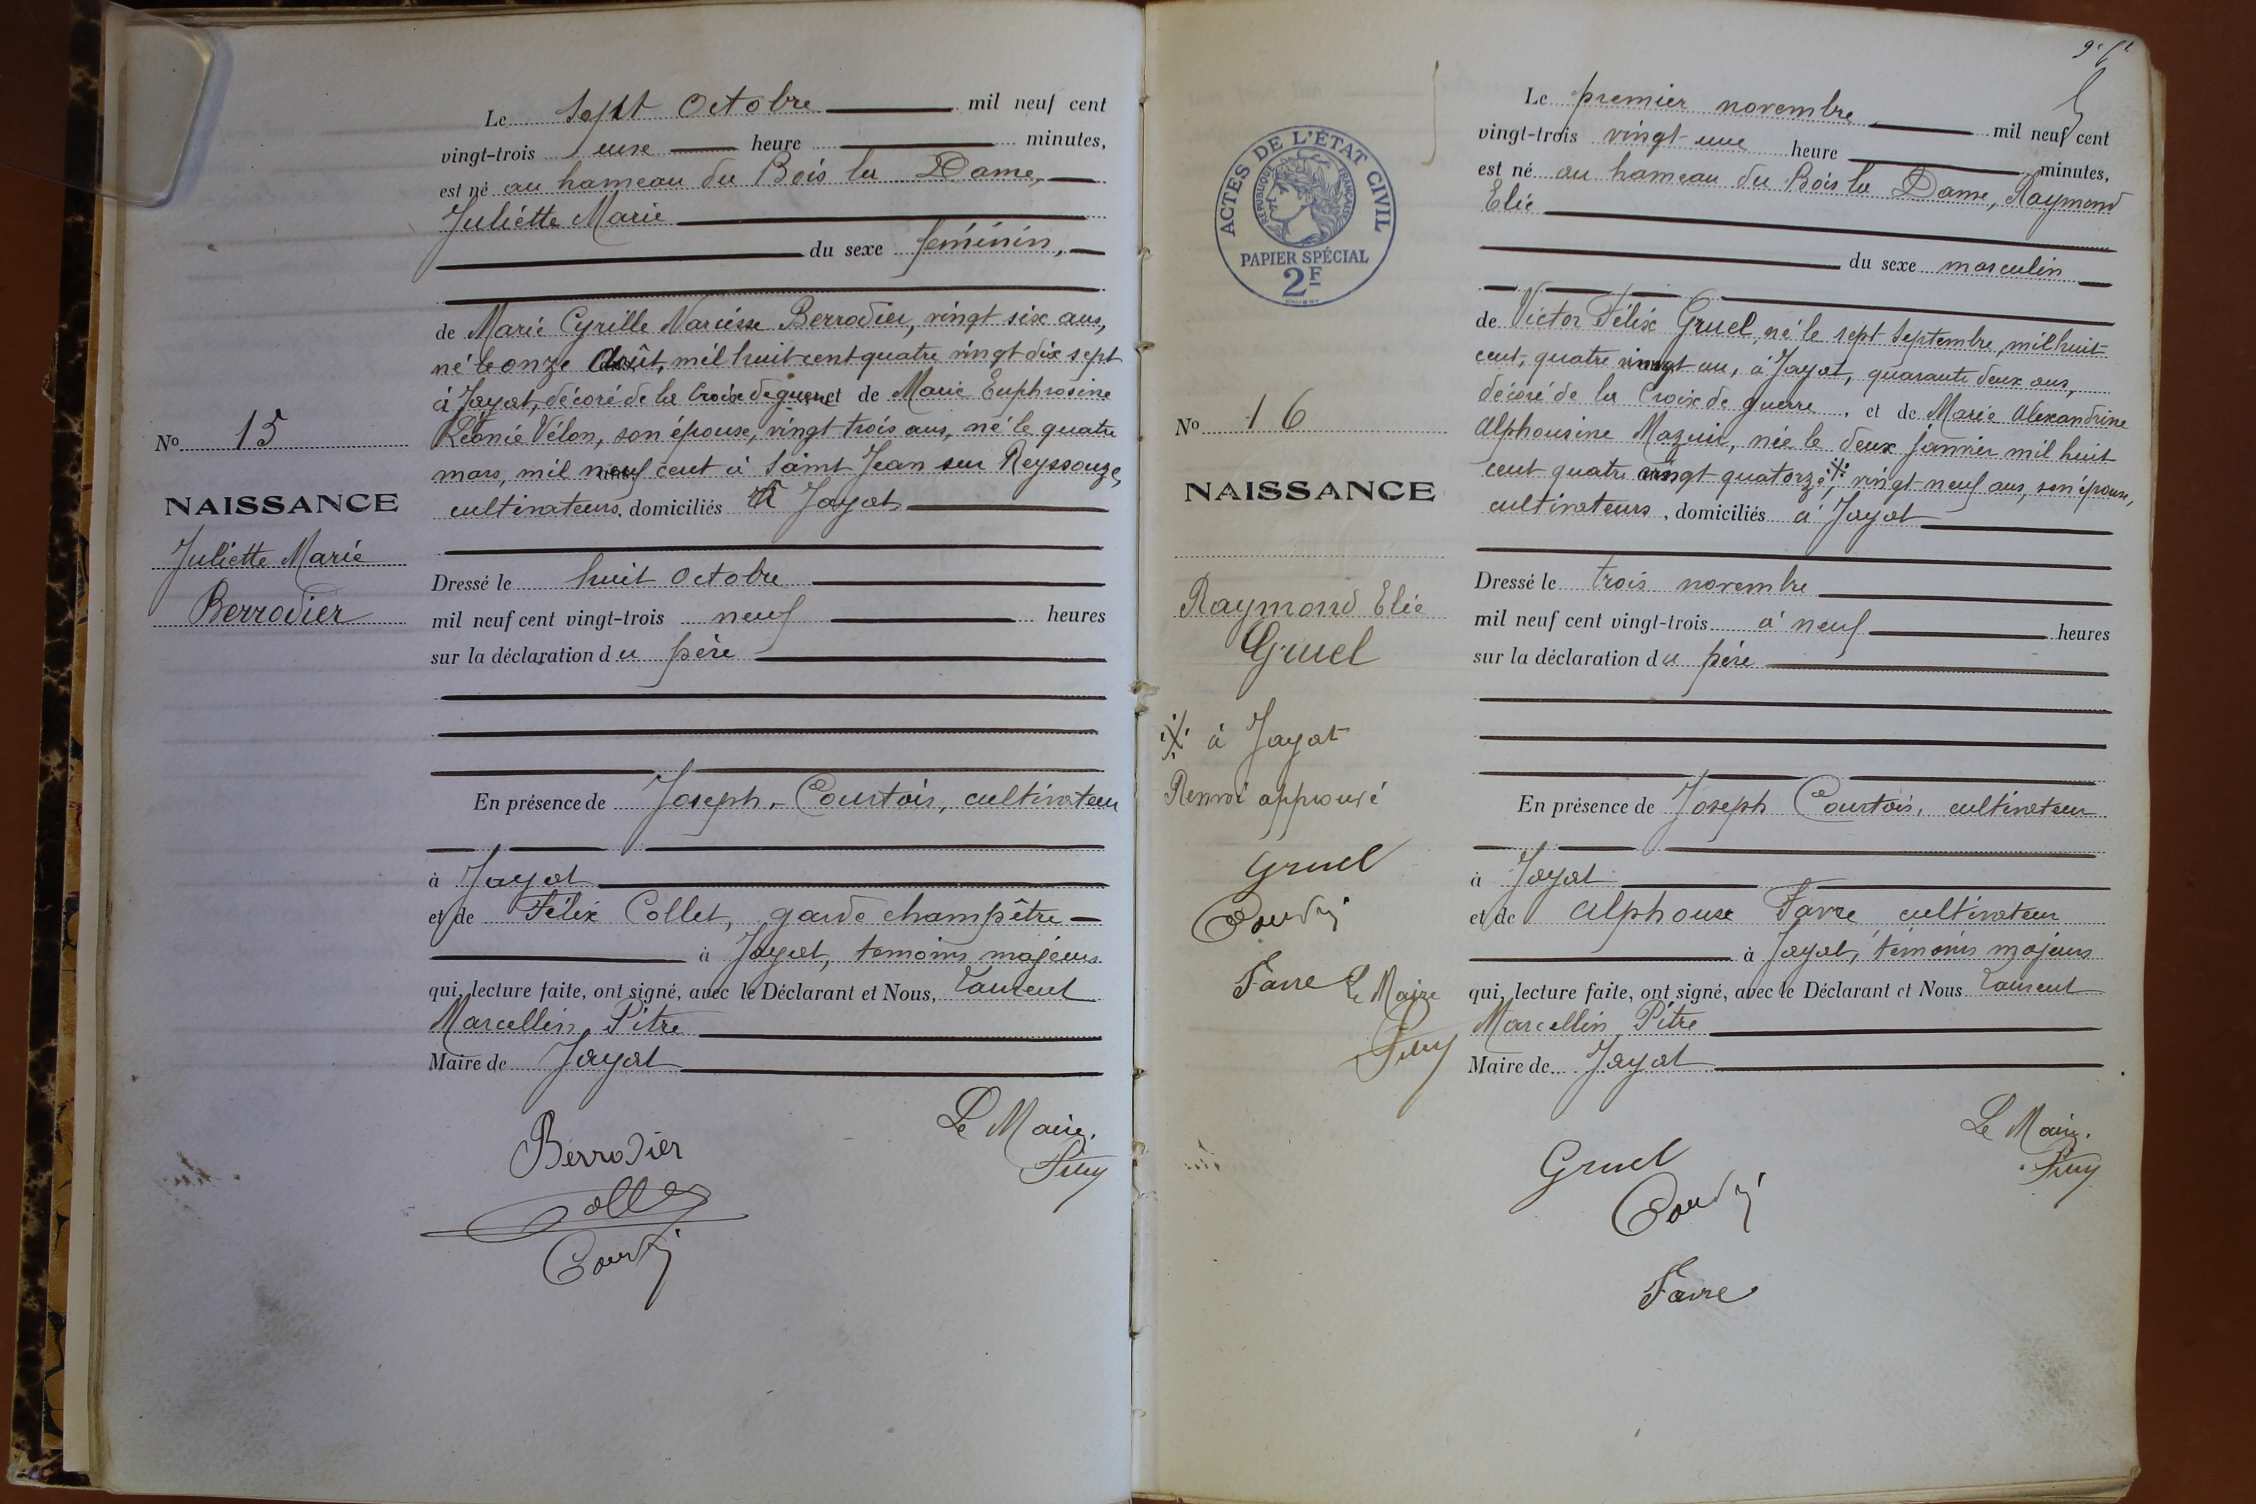 Le sept Octobre mil neuf cent
vingt-trois une heure minutes,
est né au hameau du Bois la Dame,
Juliette Marie
du sexe féminin,
de Marie Cyrille Narcisse Berrodier, vingt six ans,
né le onze Août, mil huit cent quatre vingt dix sept
à Jayat, décoré de la Croix de guerre et de Marie Euphrosine
Léonie Vélon, son épouse, vingt trois ans, né le quatre
mars, mil neuf cent à Saint Jean sur Reyssouze,
cultivateurs, domiciliés à Jayat
No 15
NAISSANCE
Juliette Marie
Berrodier
Dressé le huit Octobre
mil neuf cent vingt-trois neuf heures
sur la déclaration du père
En présence de Joseph Courtois, cultivateur
à Jayat
et de Félix Collet, garde champêtre
à Jayat, temoins majeurs
qui, lecture faite, ont signé, avec le Déclarant et Nous, Laurent
Marcellin Pitre
Maire de Jayat
Le Maire.
Berrodier
ACTES DE L'ÉTAT CIVIL
RÉPUBLIQUE FRANÇAISE
PAPIER SPÉCIAL
2F
Le premier novembre mil neuf cent
vingt-trois vingt une heure minutes,
est né au hameau du Bois la Dame, Raymond
Elie
du sexe masculin
de Victor Félix Gruel, né le sept Septembre, mil huit
cent, quatre vingt un, à Jayat, quarante deux ans,
décoré de la Croix de guerre, et de Marie Alexandrine
Alphonsine Mazuir, née le deux janvier mil huit
cent quatre vingt quatorze, vingt neuf ans, son épouse,
cultivateurs, domiciliés à Jayat
No 16
NAISSANCE
Raymond Elie
Gruel
à Jayat
Renvoi approuvé
Gruel
Favre
Le Maire
Dressé le trois novembre
mil neuf cent vingt-trois à neuf heures
sur la déclaration du père
En présence de Joseph Courtois, cultivateur
à Jayat
et de Alphonse Favre cultivateur
à Jayat, témoins majeurs
qui, lecture faite, ont signé, avec le Déclarant et Nous Laurent
Marcellin Pitre
Maire de Jayat
Le Maire.
Gruel
Favre